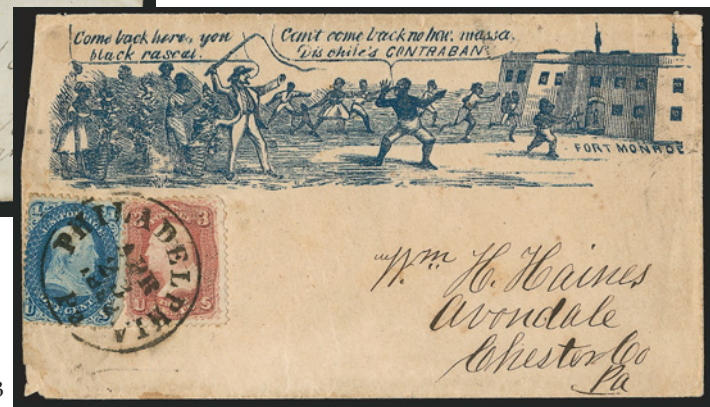 Come back here, you
black rascal.
Can't come back no how, massa.
Dis chile's CONTRABAN'
FORT MONROE
PHILADELPHIA
PA
APR
3
Wm H. Haines
Avondale
Chester Co
Pa